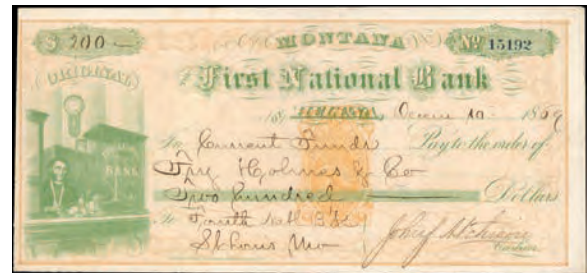 $ 200 — MONTANA No 15192
ORIGINAL First National Bank
HELENA, 10 1869
In Current Funds Pay to the order of
Holmes & Co
BANK Two hundred Dollars
To Fourth Natl Bk
St Louis Mo Cashier